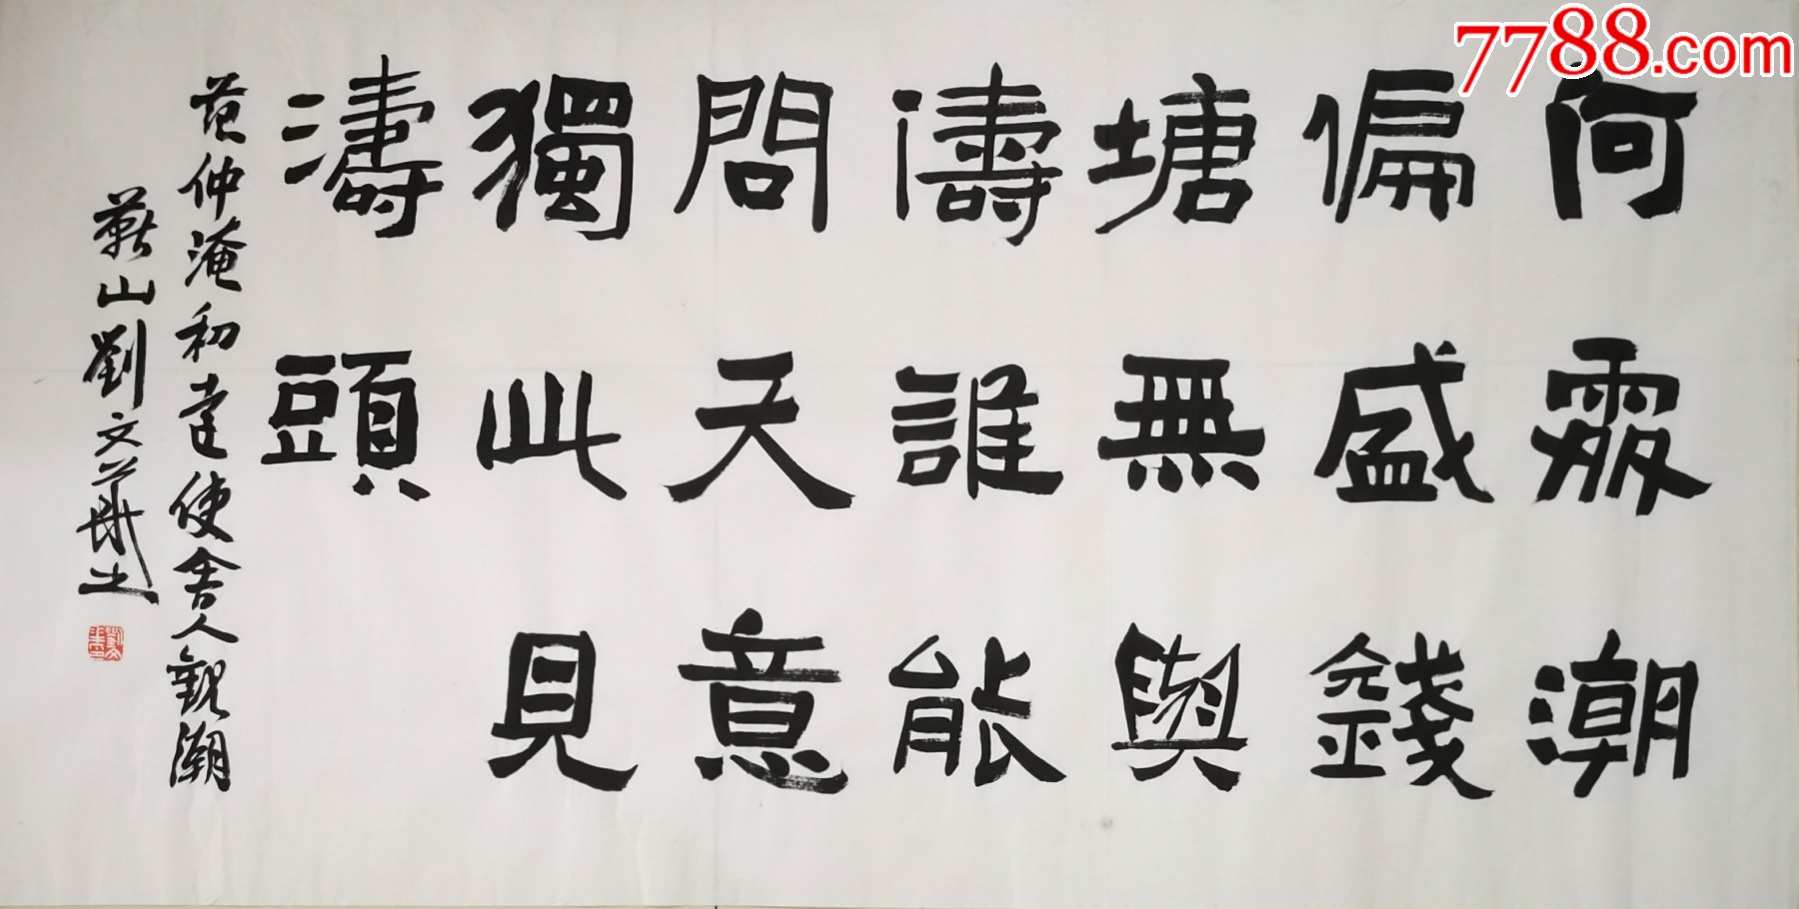 7788.com
何處潮
偏盛錢
塘無與
儔誰能
問天意
獨此見
濤頭
范仲淹和運使舍人觀潮
山劉文